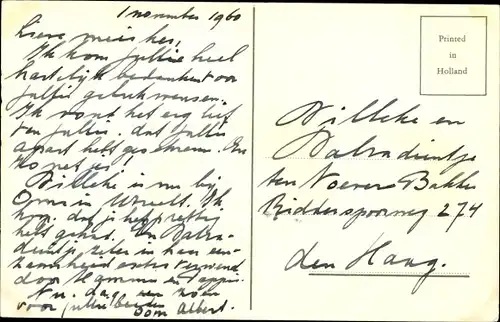 1 november 1960
Lieve meisjes,
Ik kom jullie heel
hartelijk bedanken voor
jullie gelukwensen.
Ik vond het erg lief
van jullie. dat jullie
apart hebt geschreven. En
zo netjes!
Willeke is nu bij
Oma in Utrecht. Ik
hoop. dat je het prettig
hebt gehad. En
zeker in haar een-
zaamheid extra verwend
door Mammie en Pappie.
Nu. dag. een zoen
voor jullie beiden
Oom Albert.
Printed
in
Holland
Willeke en
ten Noever Bakker
Ridderspoorweg 274
den Haag.